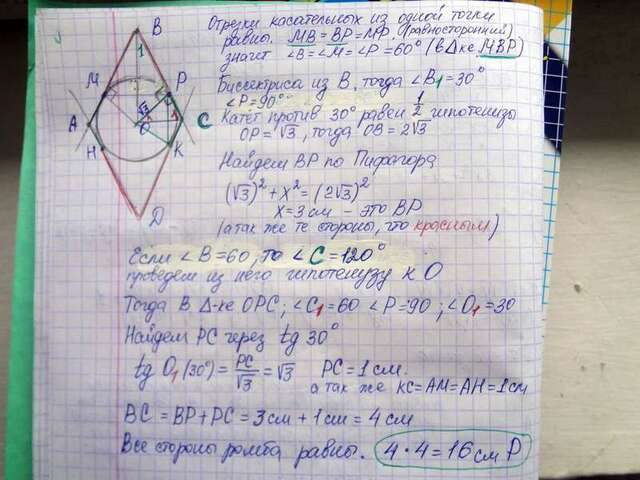 B
1
M
P
√3
1
A
O
C
H
K
D
Отрезки касательных из одной точки
равны. MB = BP = MP (равносторонний)
значит ∠B = ∠M = ∠P = 60° (в Δке MBP)
Биссектриса из B, тогда ∠B1 = 30°
∠P = 90°
Катет против 30° равен 1/2 гипотенузы
OP = √3, тогда OB = 2√3
Найдем BP по Пифагора
(√3)² + x² = (2√3)²
x = 3 см – это BP
(а так же те стороны, что красным)
Если ∠B = 60, то ∠C = 120°
проведем из него гипотенузу к O
Тогда в Δ-ке OPC; ∠C1 = 60 ∠P = 90; ∠O1 = 30
Найдем PC через tg 30°
tg O1 (30°) = PC/√3 = √3 PC = 1 см.
а так же KC = AM = AH = 1 см
BC = BP + PC = 3 см + 1 см = 4 см
Все стороны ромба равны. 4 · 4 = 16 см P